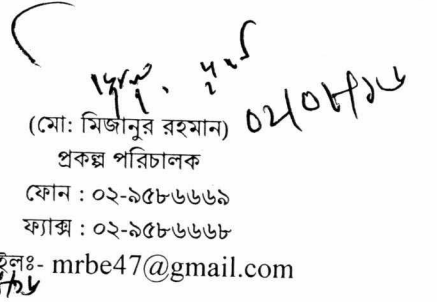 ০২/০৮/১৬
(মো: মিজানুর রহমান)
প্রকল্প পরিচালক
ফোন : ০২-৯৫৮৬৬৬৯
ফ্যাক্স : ০২-৯৫৮৬৬৬৮
ইলঃ- mrbe47@gmail.com